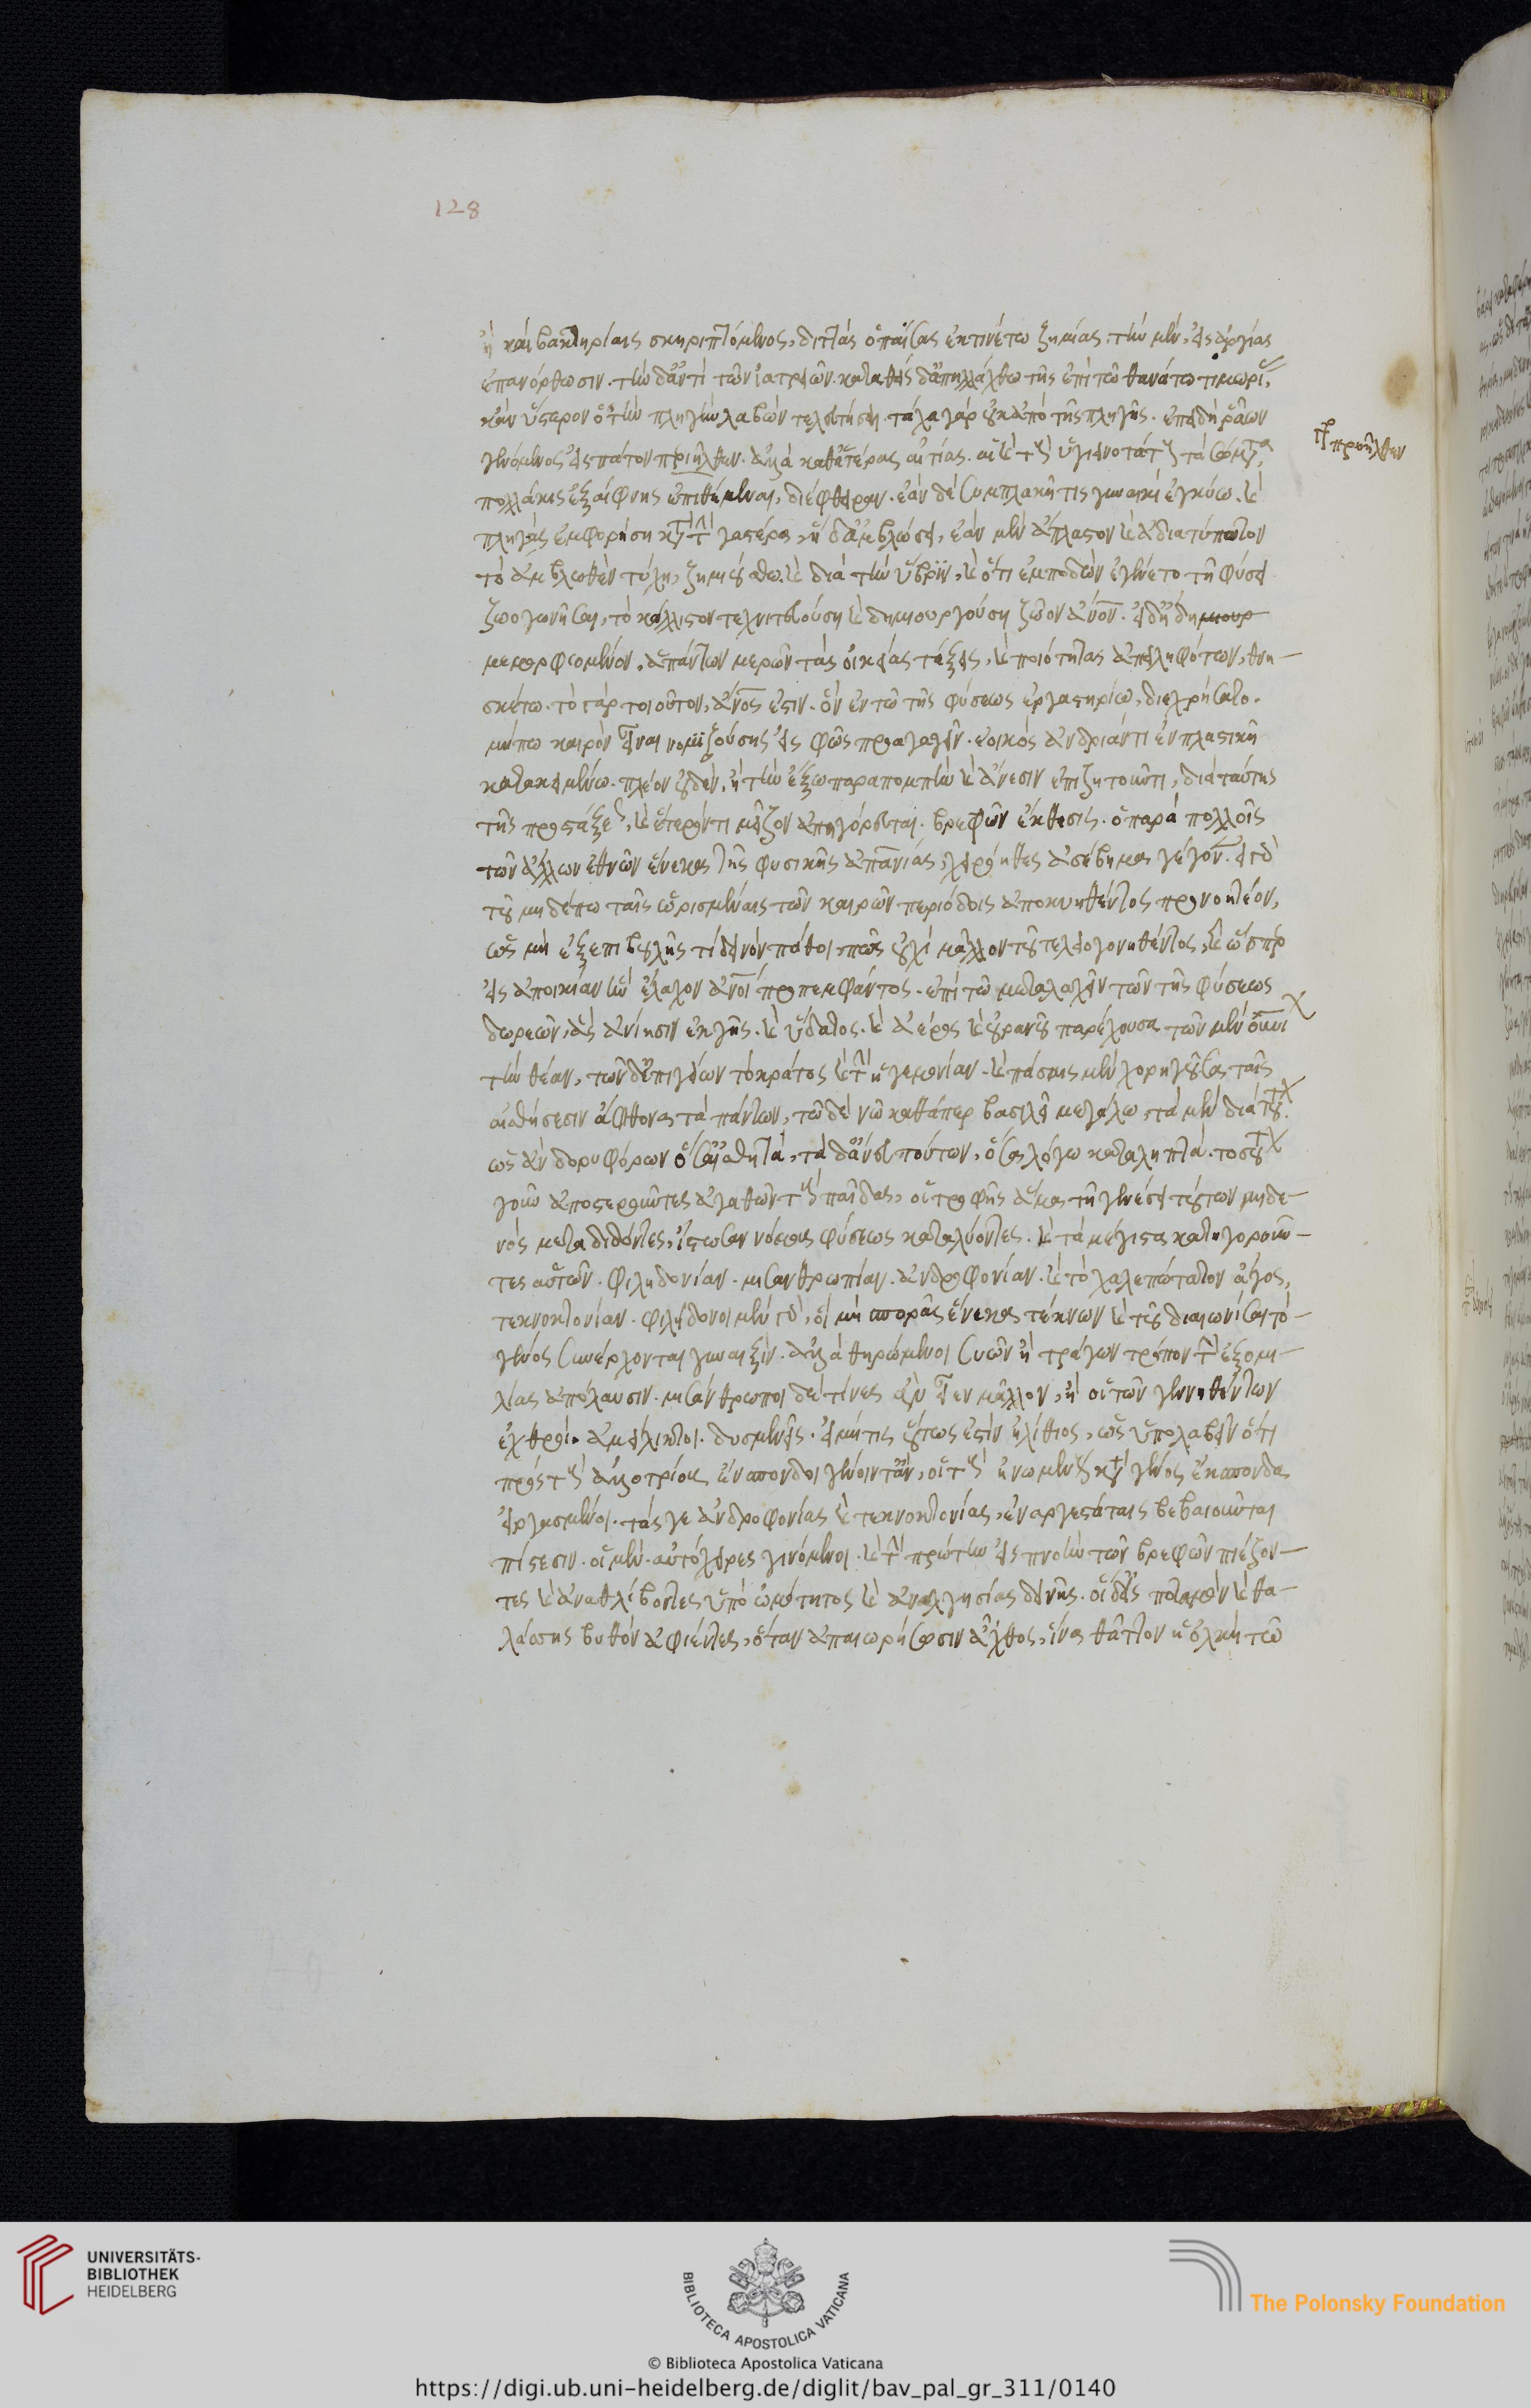 128
ἢ καὶ βακτηρίαις σκηριπτόμενος, διττὰς ὁ παίσας ἐκτινέτω ζημίας, τὴν μὲν, εἰς ἀργίας
ἐπανόρθωσιν. τὴν δ' ἀντὶ τῶν ἰατρείων. καταθεὶς δ' ἀπηλλάχθω τῆς ἐπὶ τῷ θανάτῳ τιμωρίας
κἂν ὕστερον ὁ τὴν πληγὴν λαβὼν τελευτήσῃ. τάχα γὰρ οὐκ ἀπὸ τῆς πληγῆς. ἐπειδὴ ῥάων
γενόμενος εἰς πάτον πριῆλθεν. ἀλλὰ καθ' ἑτέρας αἰτίας. αἳ καὶ τοὺς ὑγιεινοτάτους τὰ σώματα
γρ προῆλθεν
πολλάκις ἐξαίφνης ἐπιθέμεναι, διέφθειραν. ἐὰν δὲ συμπλακῇ τις γυναικὶ ἐγκύω. καὶ
πληγὰς ἐμφορήση κατὰ τὴν γαστέρα, ἡ δ' ἀμβλώσει, ἐὰν μὲν ἄπλαστον καὶ ἀδιατύπωτον
τὸ ἀμβλωθὲν τύχη, ζημιούσθω. καὶ διὰ τὴν ὕβριν, καὶ ὅτι ἐμποδὼν ἐγένετο τῇ φύσει
ζωογονῆσαι, τὸ κάλλιστον τεχνιτευούση καὶ δημιουργούση ζῶον ἄνον. εἰ δ' ἤδη
μεμορφωμένον, ἁπάντων μερῶν τὰς οἰκείας τάξεις, καὶ ποιότητας ἀπειληφότων, θνη-
σκέτω. τὸ γὰρ τοιοῦτον, ἄνος ἐστιν. ὃν ἐν τῷ τῆς φύσεως ἐργαστηρίω, διεχρήσατο.
μήπω καιρὸν εἶναι νομιζούσης εἰς φῶς προαγαγεῖν. ἐοικὸς ἀνδριάντι ἐν πλαστικῇ
κατακειμένω. πλέον οὐδὲν, ἢ τὴν ἔξω παραπομπὴν καὶ ἄνεσιν ἐπιζητοῦντι, διὰ ταύτης
τῆς προστάξεως, καὶ ἕτερόν τι μεῖζον ἀπηγόρευται. βρεφῶν ἔκθεσις. ὃ παρὰ πολλοῖς
τῶν ἄλλων ἐθνῶν ἕνεκα τῆς φυσικῆς ἀπανιάς, χειρόηθες ἀσέβημα γέγονεν. εἰ γὰρ
τοῦ μηδέπω ταῖς ὡρισμέναις τῶν καιρῶν περιόδοις ἀποκυηθέντος προνοητέον,
ὡς μὴ ἐξ ἐπιβουλῆς τι δεινὸν πάθοι, πῶς οὐχὶ μᾶλλον τοῦ τελειογονηθέντος, καὶ ὥσπερ
εἰς ἀποικίαν ἣν ἔλαχον ἄνοι προπεμφθέντος. ἐπὶ τῷ μεταλαχεῖν τῶν τῆς φύσεως
δωρεῶν, ἃς ἀνίησιν ἐκ γῆς. καὶ ὕδατος. καὶ ἀέρος καὶ οὐρανοῦ παρέχουσα τῶν μὲν
τὴν θέαν, τῶν δ' ἐπιγείων τὸ κράτος καὶ τὴν ἡγεμονίαν. καὶ πάσαις μὲν χορηγοῦσα ταῖς
αἰσθήσεσιν ἄφθονα τὰ πάντων, τῷ δὲ νῷ καθάπερ βασιλεῖ μεγάλω, τὰ μὲν διὰ τού
ὡς ἂν δορυφόρων ὅσα αἰσθητά, τὰ δ' ἄνευ τούτων, ὅσα λόγω καταληπτά. τοσού
γοῦν ἀποστεροῦντες ἀγαθῶν τοὺς παῖδας, οἱ τροφῆς ἅμα τῇ γενέσει τούτων μηδε-
νὸς μεταδιδόντες, ἴστωσαν νόμους φύσεως καταλύοντες. καὶ τὰ μέγιστα κατηγοροῦν-
τες αὑτῶν. φιληδονίαν. μισανθρωπίαν. ἀνδροφονίαν. καὶ τὸ χαλεπώτατον ἄγος,
τεκνοκτονίαν. φιλήδονοι μὲν γὰρ, οἱ μὴ σπορᾶς ἕνεκα τέκνων καὶ τοῦ διαιωνίσαι τὸ
γένος συνέρχονται γυναιξὶν. ἀλλὰ θηρώμενοι συῶν ἢ τράγων τρόπον τὴν ἐξ ὁμι-
λίας ἀπόλαυσιν. μισάνθρωποι δὲ τίνες ἂν εἶεν μᾶλλον, ἢ οἱ τῶν γεννηθέντων
ἐχθροὶ. ἀμείλικτοι. δυσμενεῖς. εἰ μή τις οὕτως ἐστὶν ἠλίθιος, ὡς ὑπολαβεῖν ὅτι
πρὸς τοὺς ἀλλοτρίους ἔνσπονδοι γένοιντ' ἂν, οἱ τοὺς ἡνωμένους κατὰ γένος ἔκσπονδα
εἰργασμένοι. τάς γε ἀνδροφονίας καὶ τεκνοκτονίας, ἐναργεστάταις βεβαιοῦνται
πίστεσιν. οἱ μὲν. αὐτόχειρες γινόμενοι. καὶ τὴν πρώτην εἰσπνοὴν τῶν βρεφῶν πιέζον-
τες καὶ ἀναθλίβοντες ὑπὸ ὠμότητος καὶ ἀναλγησίας δεινῆς. οἱ δ' εἰς ποταμὸν καὶ θα-
λάσσης βυθὸν ἀφιέντες, ὅταν ἀπαιωρήσωσιν ἄχθος, ἵνα θᾶττον ἡ ὁλκὴ τῷ
UNIVERSITÄTS-
BIBLIOTHEK
HEIDELBERG
BIBLIOTECA APOSTOLICA VATICANA
The Polonsky Foundation
© Biblioteca Apostolica Vaticana
https://digi.ub.uni-heidelberg.de/diglit/bav_pal_gr_311/0140